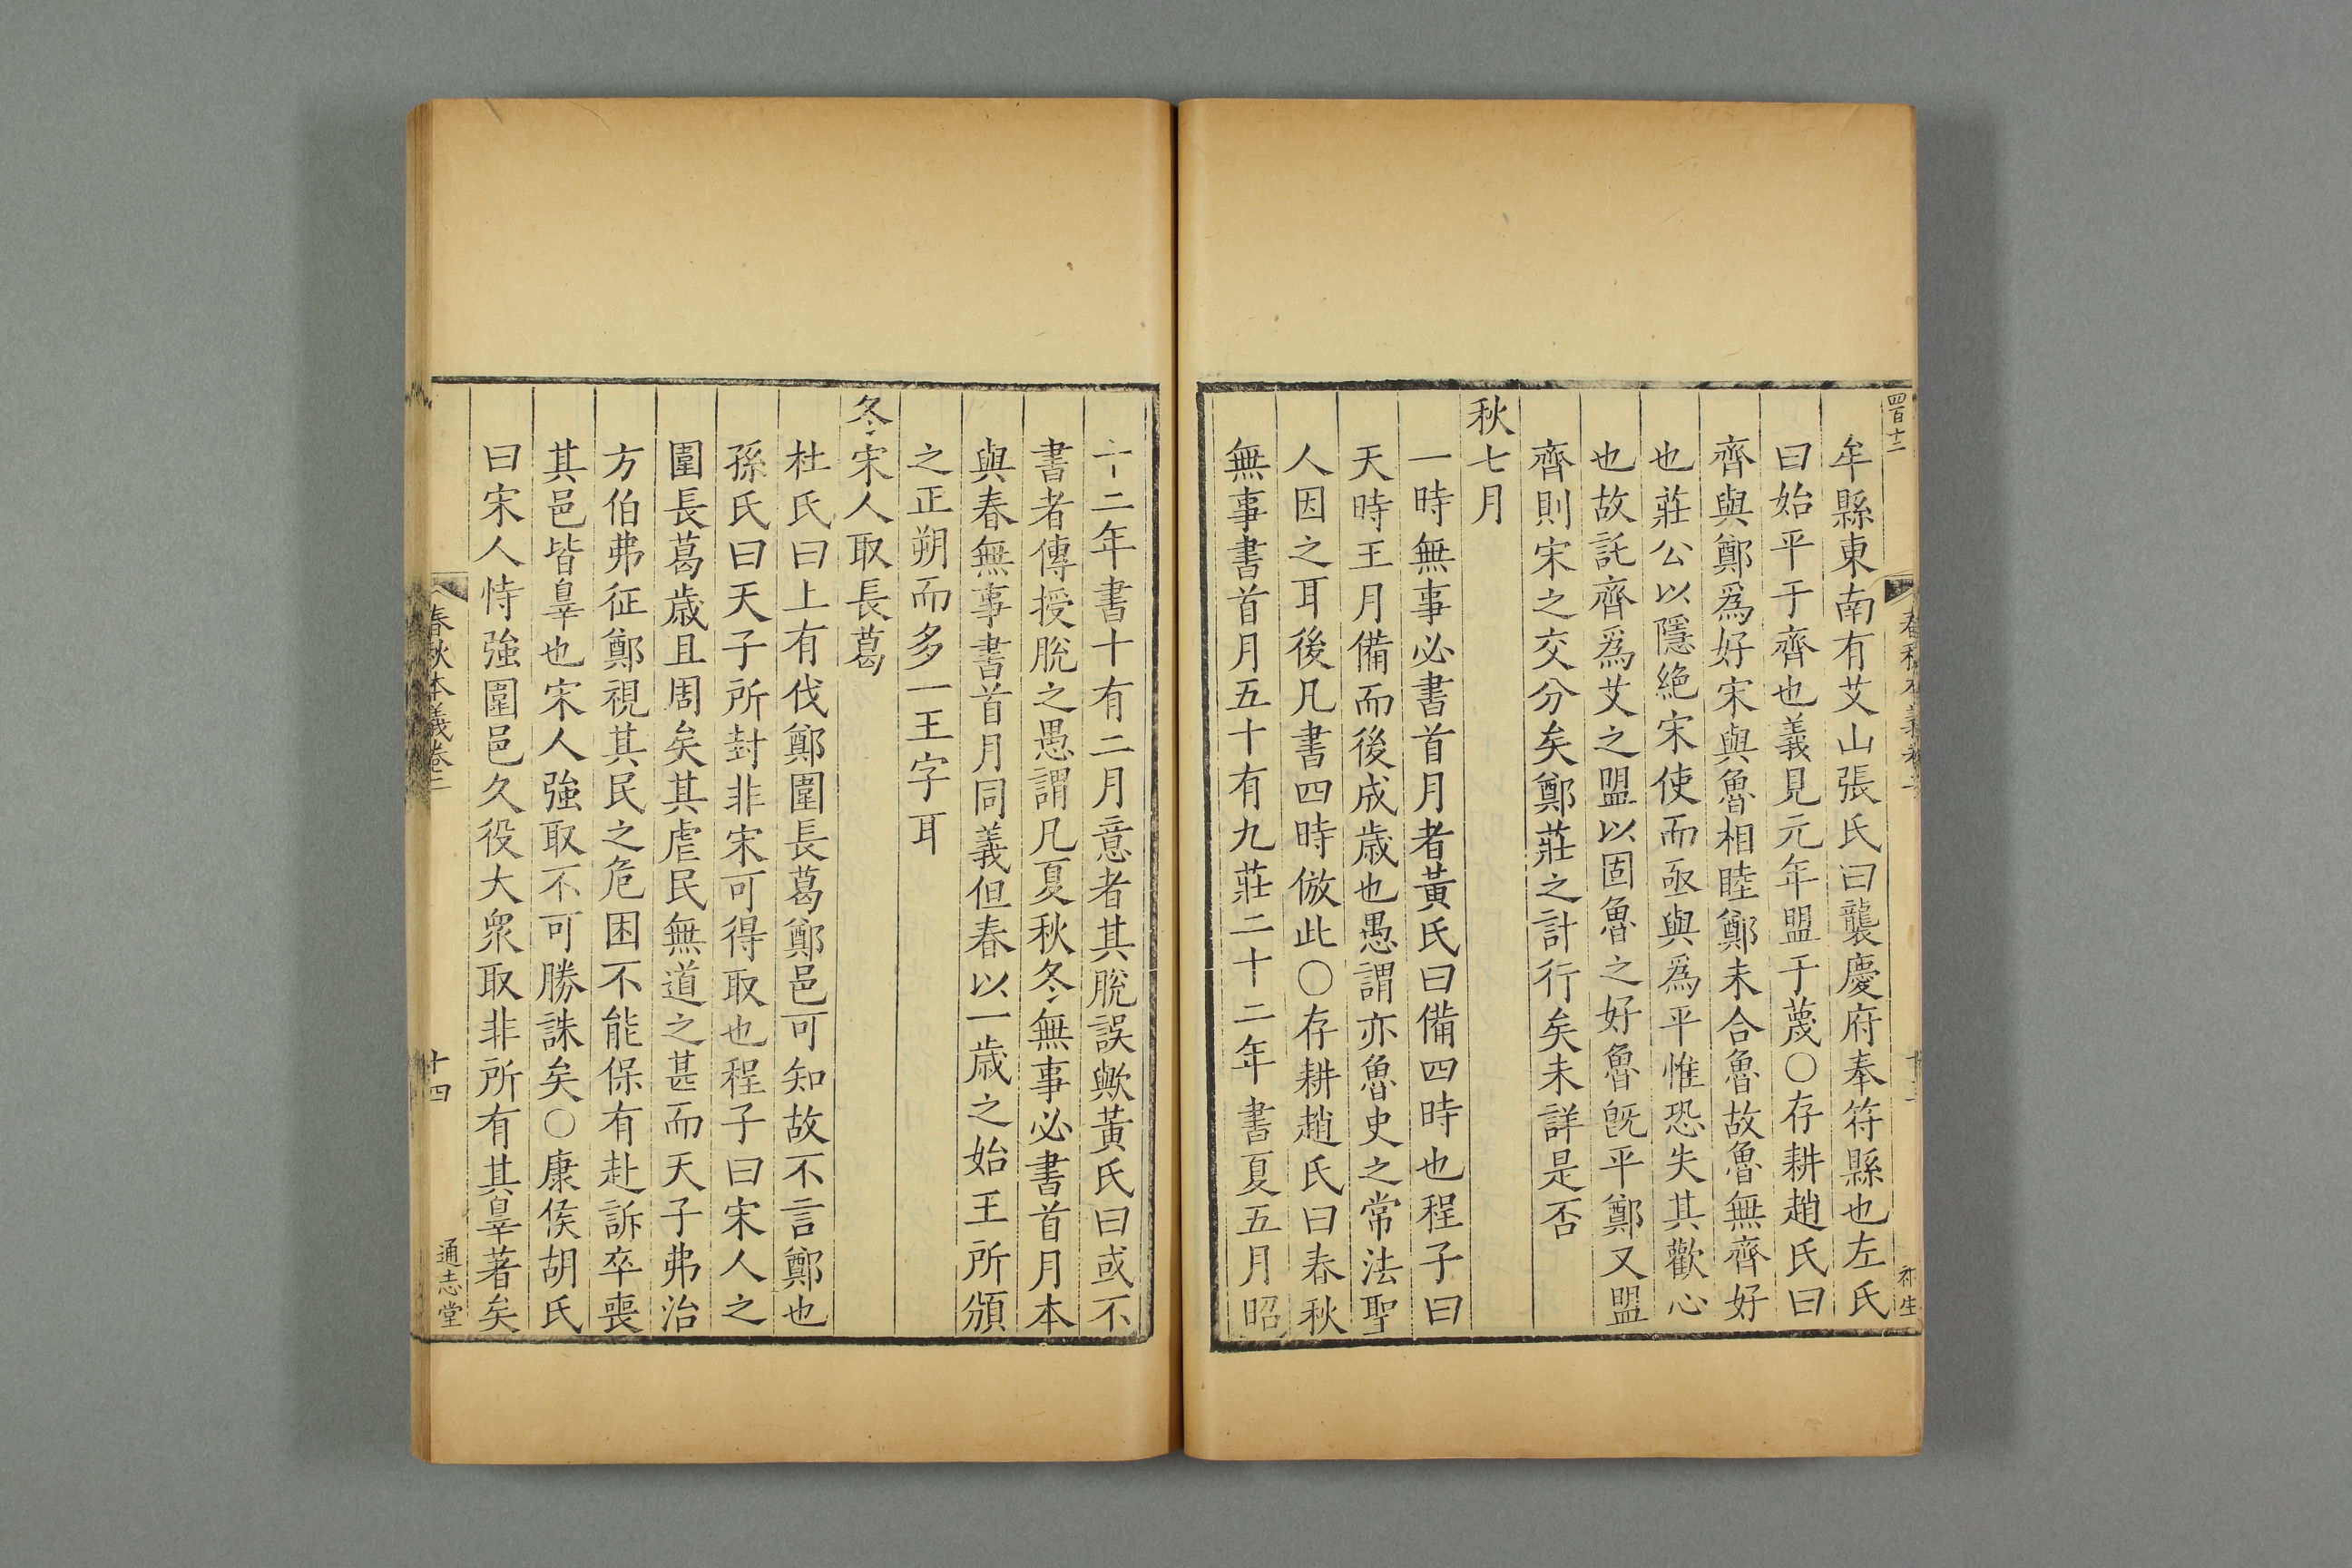 四百十二
牟縣東南有艾山張氏曰襲慶府奉符縣也左氏
曰始平于齊也義見元年盟于蔑○存耕趙氏曰
齊與鄭爲好宋與魯相睦鄭未合魯故魯無齊好
也莊公以隱絶宋使而亟與爲平惟恐失其歡心
也故託齊爲艾之盟以固魯之好魯旣平鄭又盟
齊則宋之交分矣鄭莊之計行矣未詳是否
秋七月
一時無事必書首月者黃氏曰備四時也程子曰
天時王月備而後成歲也愚謂亦魯史之常法聖
人因之耳後凡書四時倣此○存耕趙氏曰春秋
無事書首月五十有九莊二十二年書夏五月昭
十二年書十有二月意者其脫誤歟黃氏曰或不
書者傳授脫之愚謂凡夏秋冬無事必書首月本
與春無事書首月同義但春以一歲之始王所頒
之正朔而多一王字耳
冬宋人取長葛
杜氏曰上有伐鄭圍長葛鄭邑可知故不言鄭也
孫氏曰天子所封非宋可得取也程子曰宋人之
圍長葛歲且周矣其虐民無道之甚而天子弗治
方伯弗征鄭視其民之危困不能保有赴訴卒喪
其邑皆辠也宋人強取不可勝誅矣○康侯胡氏
曰宋人恃強圍邑久役大衆取非所有其辠著矣
春秋本義卷二
十四
通志堂